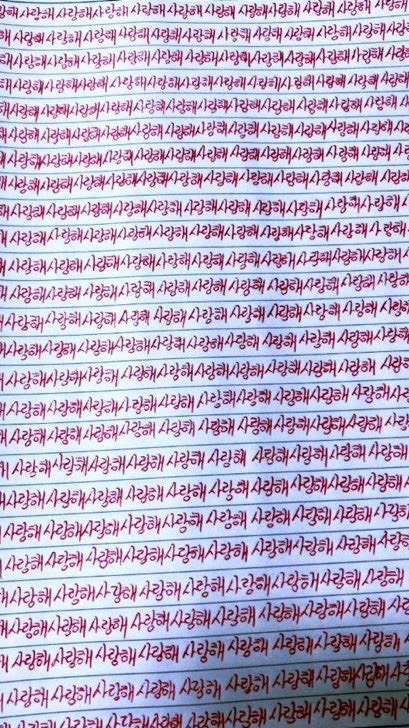 사랑해 사랑해사랑해 사랑해사랑해 사랑해사랑해 사랑해 사랑해
사랑해 사랑해 사랑해 사랑해 사랑해 사랑해 사랑해 사랑해 사랑해
사랑해사랑해 사랑해 사랑해 사랑해 사랑해사랑해 사랑해 사랑해 사랑해
사랑해사랑해사랑해 사랑해 사랑해사랑해 사랑해사랑해 사랑해 사랑해
사랑해 사랑해사랑해사랑해사랑해사랑해사랑해 사랑해 사랑해 사랑해
사랑해사랑해사랑해 사랑해사랑해 사랑해 사랑해사랑해사랑해사랑해
사랑해사랑해사랑해사랑해사랑해 사랑해 사랑해 사랑해 사랑해
사랑해 사랑해사랑해사랑해사랑해사랑해 사랑해사랑해사랑해 사랑해
사랑해 사랑해사랑해 사랑해사랑해 사랑해사랑해 사랑해 사랑해
사랑해 사랑해사랑해 사랑해사랑해 사랑해사랑해 사랑해 사랑해
사랑해 사랑해 사랑해사랑해 사랑해사랑해 사랑해 사랑해사랑해
사랑해 사랑해사랑해 사랑해사랑해사랑해 사랑해 사랑해 사랑해
사랑해 사랑해사랑해 사랑해 사랑해사랑해 사랑해 사랑해사랑해
사랑해사랑해 사랑해사랑해 사랑해 사랑해 사랑해 사랑해사랑해
사랑해 사랑해사랑해 사랑해사랑해사랑해사랑해사랑해 사랑해
사랑해 사랑해사랑해사랑해 사랑해사랑해 사랑해사랑해 사랑해
사랑해 사랑해 사랑해사랑해 사랑해 사랑해 사랑해사랑해 사랑해
사랑해사랑해사랑해 사랑해 사랑해 사랑해사랑해 사랑해
사랑해 사랑해사랑해 사랑해 사랑해 사랑해사랑해사랑해
사랑해 사랑해사랑해사랑해사랑해 사랑해 사랑해 사랑해
사랑해 사랑해 사랑해사랑해사랑해 사랑해사랑해 사랑해
사랑해 사랑해사랑해 사랑해사랑해사랑해사랑해사랑해
사랑해사랑해사랑해 사랑해사랑해 사랑해사랑해사랑해
사랑해 사랑해사랑해 사랑해 사랑해 사랑해사랑해 사랑해
사랑해 사랑해 사랑해사랑해 사랑해 사랑해사랑해사랑해
사랑해 사랑해 사랑해 사랑해사랑해사랑해